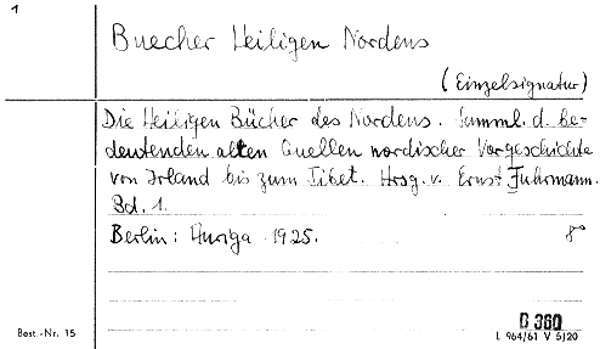 1
Buecher Heiligen Nordens
(Einzelsignatur)
Die Heiligen Bücher des Nordens. Samml. d. be-
deutenden alten Quellen nordischer Vorgeschichte
von Irland bis zum Tibet. Hrsg. v. Ernst Fuhrmann.
Bd. 1.
Berlin: Auriga 1925. 8°
D 360
Best.-Nr. 15
L 964/61 V 5/20